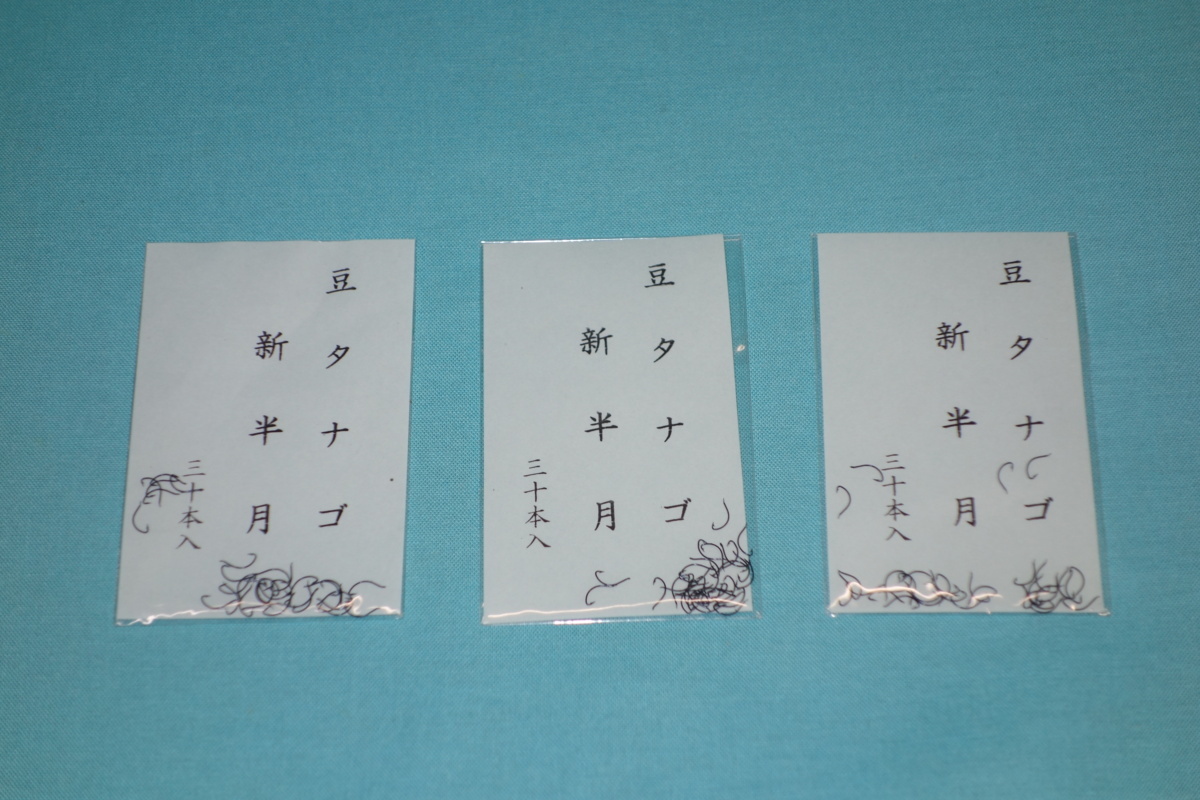 豆タナゴ
新半月
三十本入
豆タナゴ
新半月
三十本入
豆タナゴ
新半月
三十本入